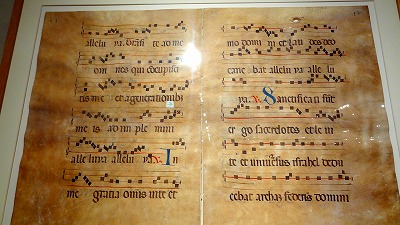 allelu ya. Transi te ad me
om nes qui cōcupisci
tis me et a generationibꝫ
me is ad im ple mini
alle luya allelu ya ℣. In
me gratia omnis vite et
mo domini et lau des deo
cane bat allelu ya alle lu
ya. ℣. Sanctifica ti sūt
er go sacerdotes et le vi
te et universus israhel dedu
cebat archam federis domini